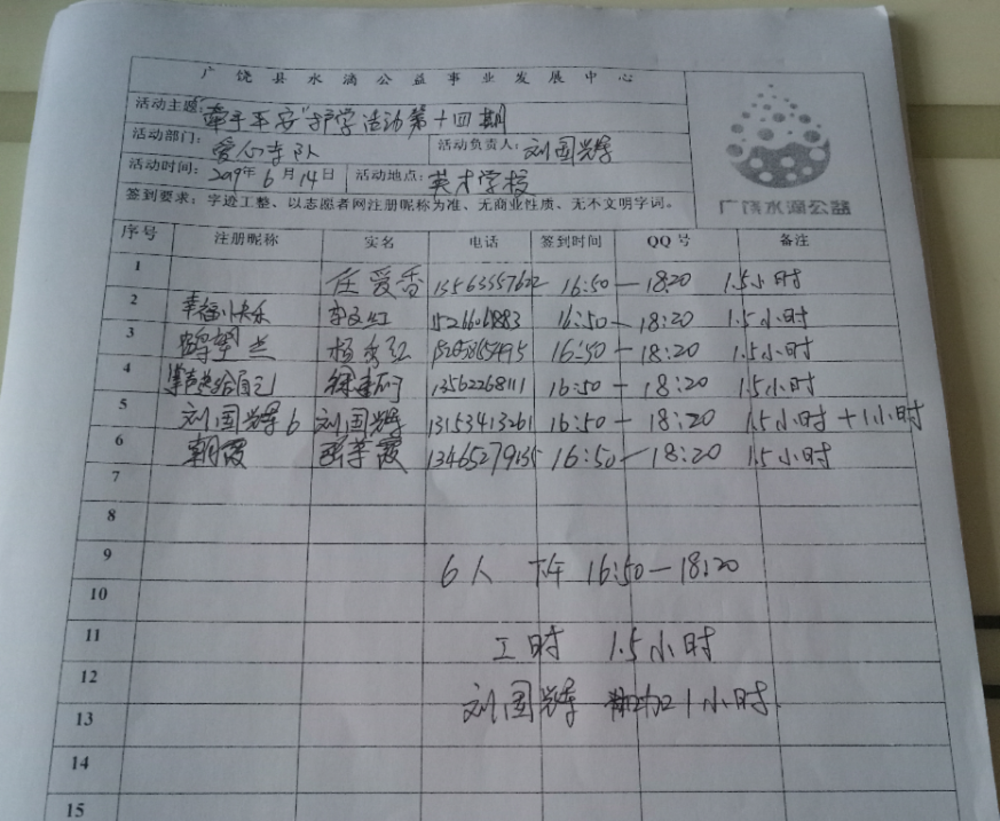 广饶县水滴公益事业发展中心
活动主题：“牵手平安”护学活动第十四期
活动部门：爱心车队 活动负责人：刘国辉
活动时间：2019年6月14日 活动地点：英才学校
签到要求：字迹工整、以志愿者网注册昵称为准、无商业性质、无不文明字词。
广饶水滴公益
序号 注册昵称 实名 电话 签到时间 QQ号 备注
1 任爱香 16:50—18:20 1.5小时
2 幸福快乐 李文红 16:50—18:20 1.5小时
3 16:50—18:20 1.5小时
4 掌声送给自己 13562268111 16:50—18:20 1.5小时
5 刘国辉6 刘国辉 13153413261 16:50—18:20 1.5小时+1小时
6 朝霞 16:50—18:20 1.5小时
7
8
9 6人 下午 16:50—18:20
10
11 工时 1.5小时
12
13 刘国辉 加1小时
14
15